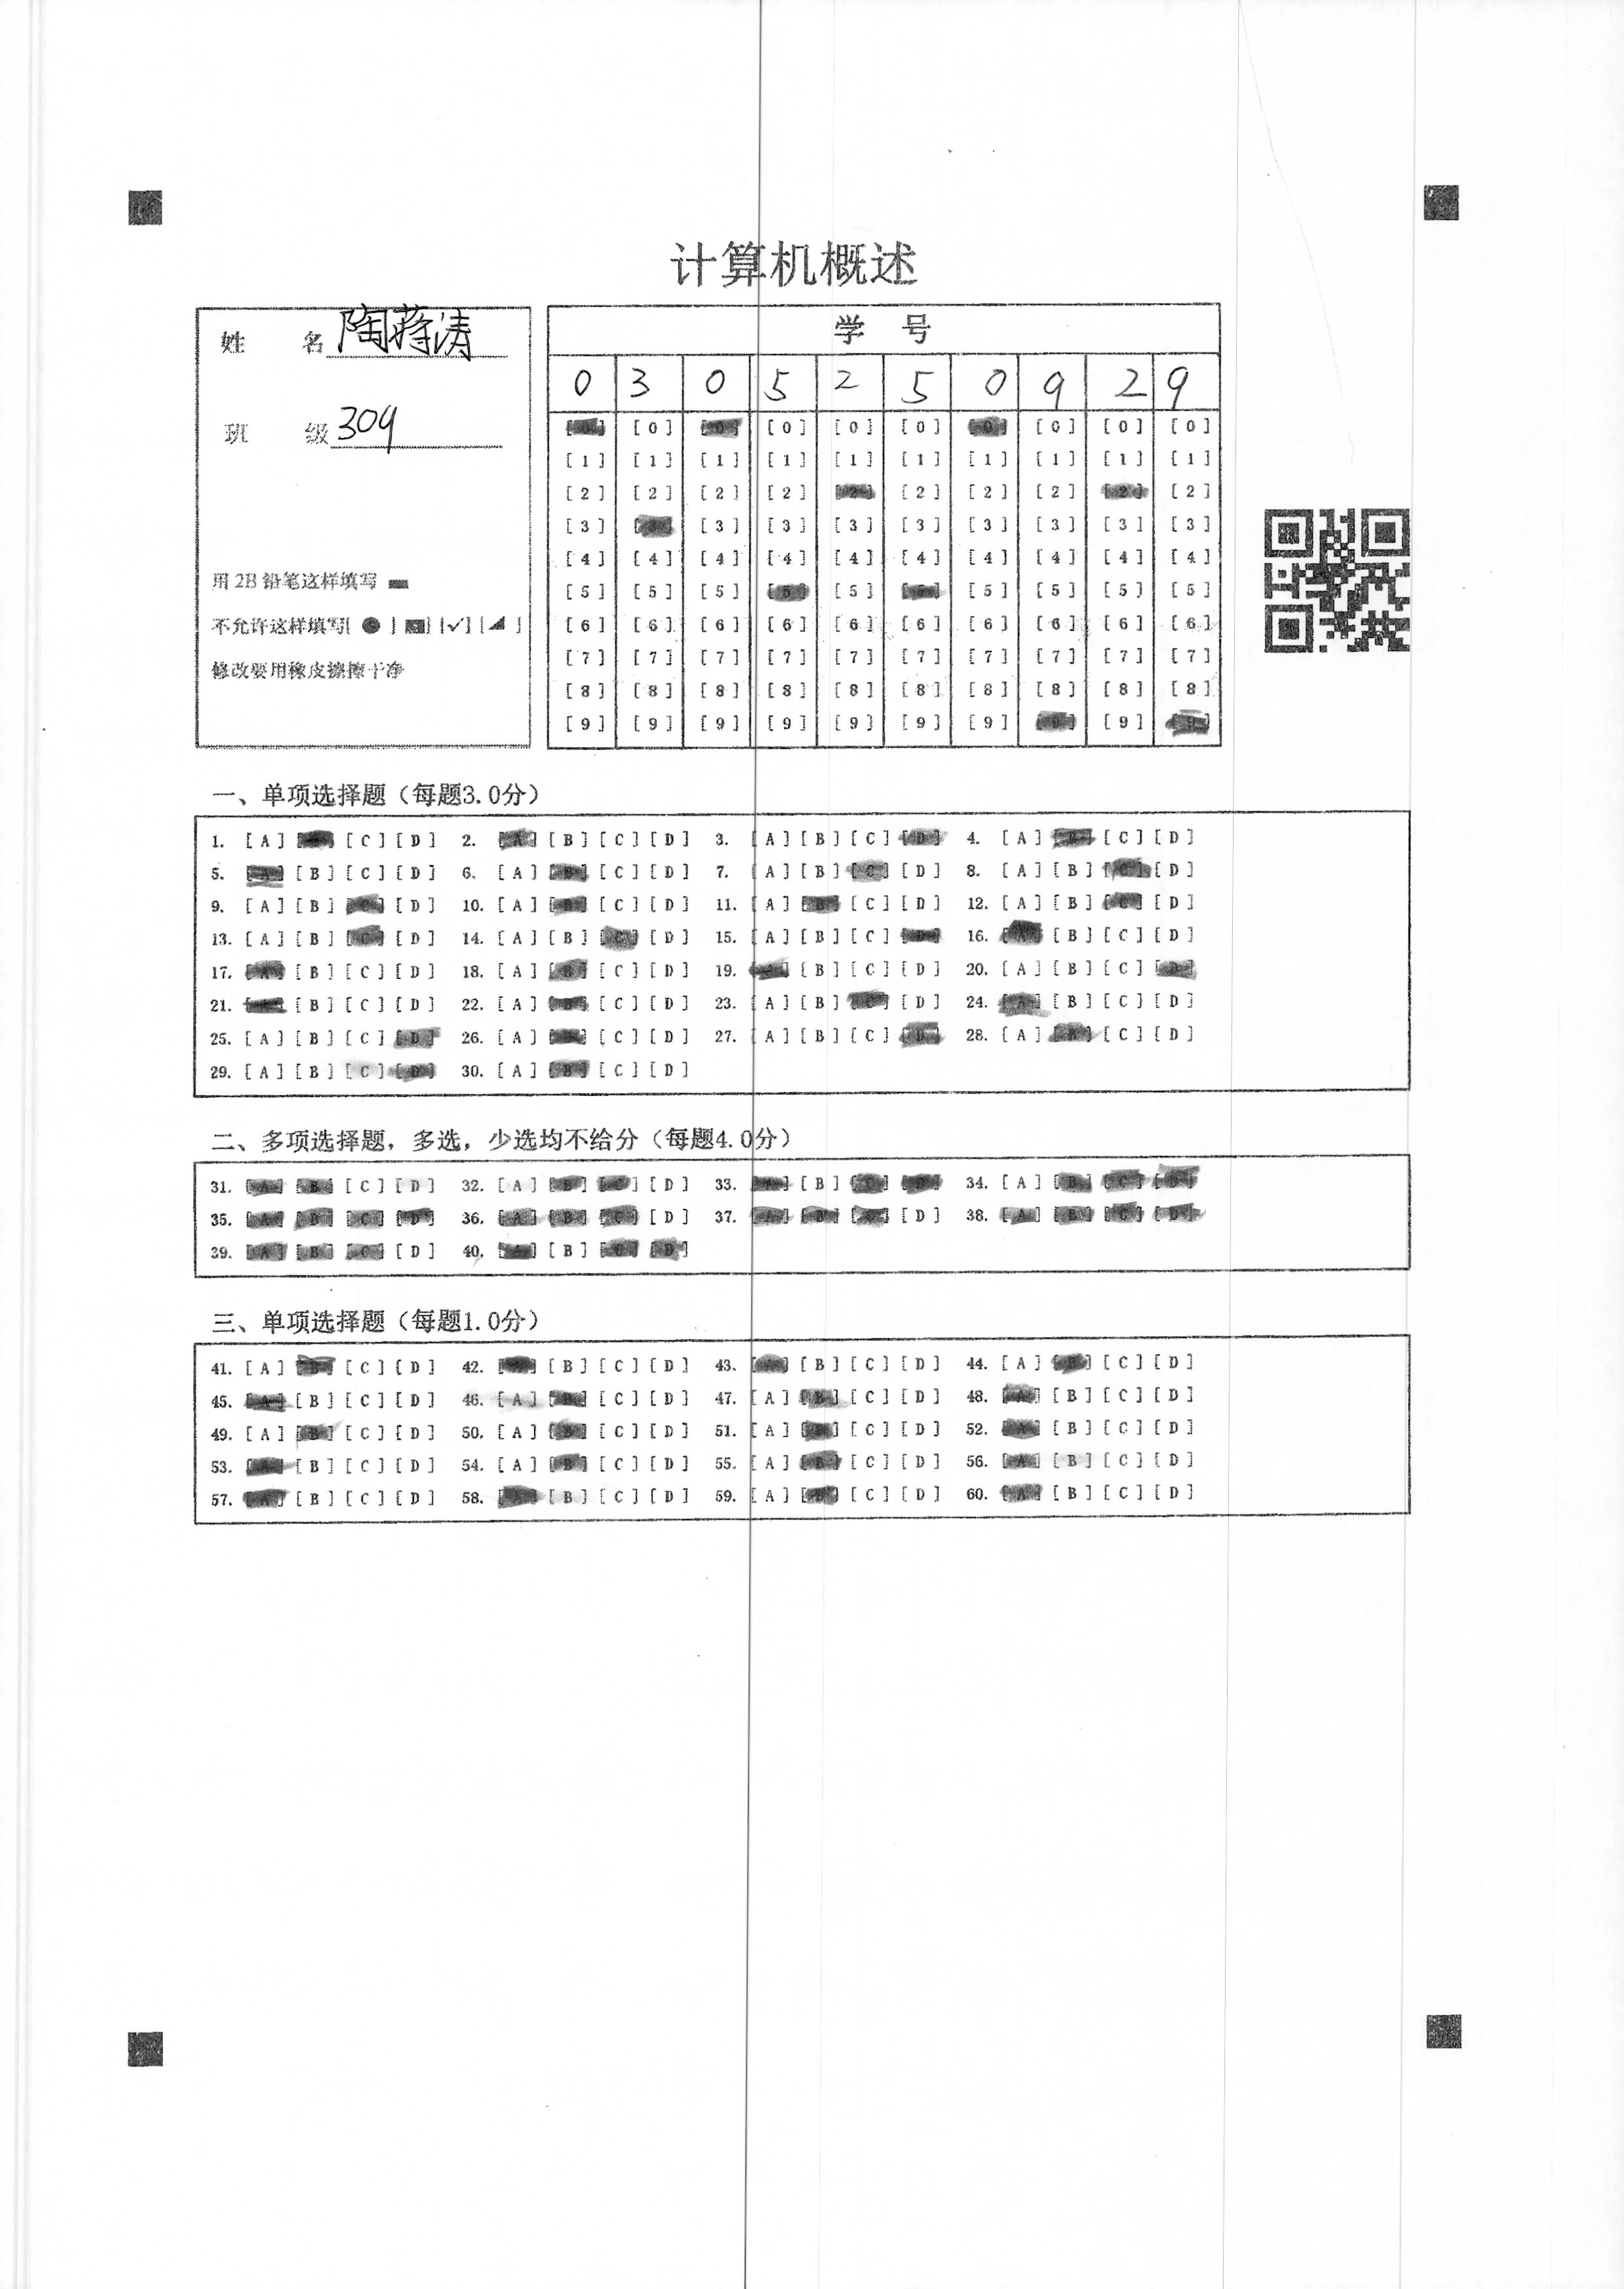 计算机概述
姓 名 陶蒋涛
班 级 309
用 2B 铅笔这样填写
不允许这样填写[ ● ] [ ] [✓] [ ]
修改要用橡皮擦擦干净
学 号
0 3 0 5 2 5 0 9 2 9
[0] [0] [0] [0] [0] [0] [0] [0] [0] [0]
[1] [1] [1] [1] [1] [1] [1] [1] [1] [1]
[2] [2] [2] [2] [2] [2] [2] [2] [2] [2]
[3] [3] [3] [3] [3] [3] [3] [3] [3] [3]
[4] [4] [4] [4] [4] [4] [4] [4] [4] [4]
[5] [5] [5] [5] [5] [5] [5] [5] [5] [5]
[6] [6] [6] [6] [6] [6] [6] [6] [6] [6]
[7] [7] [7] [7] [7] [7] [7] [7] [7] [7]
[8] [8] [8] [8] [8] [8] [8] [8] [8] [8]
[9] [9] [9] [9] [9] [9] [9] [9] [9] [9]
一、单项选择题（每题3.0分）
1. [A] [B] [C] [D] 2. [A] [B] [C] [D] 3. [A] [B] [C] [D] 4. [A] [B] [C] [D]
5. [A] [B] [C] [D] 6. [A] [B] [C] [D] 7. [A] [B] [C] [D] 8. [A] [B] [C] [D]
9. [A] [B] [C] [D] 10. [A] [B] [C] [D] 11. [A] [B] [C] [D] 12. [A] [B] [C] [D]
13. [A] [B] [C] [D] 14. [A] [B] [C] [D] 15. [A] [B] [C] [D] 16. [A] [B] [C] [D]
17. [A] [B] [C] [D] 18. [A] [B] [C] [D] 19. [A] [B] [C] [D] 20. [A] [B] [C] [D]
21. [A] [B] [C] [D] 22. [A] [B] [C] [D] 23. [A] [B] [C] [D] 24. [A] [B] [C] [D]
25. [A] [B] [C] [D] 26. [A] [B] [C] [D] 27. [A] [B] [C] [D] 28. [A] [B] [C] [D]
29. [A] [B] [C] [D] 30. [A] [B] [C] [D]
二、多项选择题，多选，少选均不给分（每题4.0分）
31. [A] [B] [C] [D] 32. [A] [B] [C] [D] 33. [A] [B] [C] [D] 34. [A] [B] [C] [D]
35. [A] [B] [C] [D] 36. [A] [B] [C] [D] 37. [A] [B] [C] [D] 38. [A] [B] [C] [D]
39. [A] [B] [C] [D] 40. [A] [B] [C] [D]
三、单项选择题（每题1.0分）
41. [A] [B] [C] [D] 42. [A] [B] [C] [D] 43. [A] [B] [C] [D] 44. [A] [B] [C] [D]
45. [A] [B] [C] [D] 46. [A] [B] [C] [D] 47. [A] [B] [C] [D] 48. [A] [B] [C] [D]
49. [A] [B] [C] [D] 50. [A] [B] [C] [D] 51. [A] [B] [C] [D] 52. [A] [B] [C] [D]
53. [A] [B] [C] [D] 54. [A] [B] [C] [D] 55. [A] [B] [C] [D] 56. [A] [B] [C] [D]
57. [A] [B] [C] [D] 58. [A] [B] [C] [D] 59. [A] [B] [C] [D] 60. [A] [B] [C] [D]